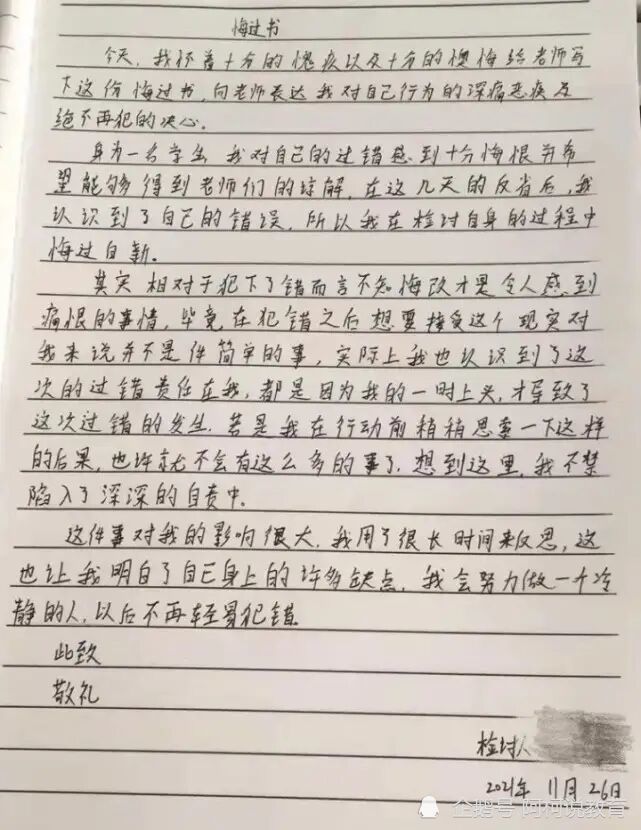 悔过书
今天，我怀着十分的愧疚以及十分的懊悔给老师写
下这份悔过书，向老师表达我对自己行为的深痛恶疾及
绝不再犯的决心。
身为一名学生，我对自己的过错感到十分悔恨并希
望能够得到老师们的谅解，在这几天的反省后，我
认识到了自己的错误，所以我在检讨自身的过程中
悔过自新。
其实相对于犯下了错而言不知悔改才是令人感到
痛恨的事情，毕竟在犯错之后想要接受这个现实对
我来说并不是件简单的事，实际上我也认识到了这
次的过错责任在我，都是因为我的一时上头，才导致了
这次过错的发生，若是我在行动前稍稍思索一下这样
的后果，也许就不会有这么多的事了，想到这里，我不禁
陷入了深深的自责中。
这件事对我的影响很大，我用了很长时间来反思，这
也让我明白了自己身上的许多缺点，我会努力做一个冷
静的人，以后不再轻易犯错。
此致
敬礼
检讨人
2021年 11月 26日
企鹅号 阿柯说教育